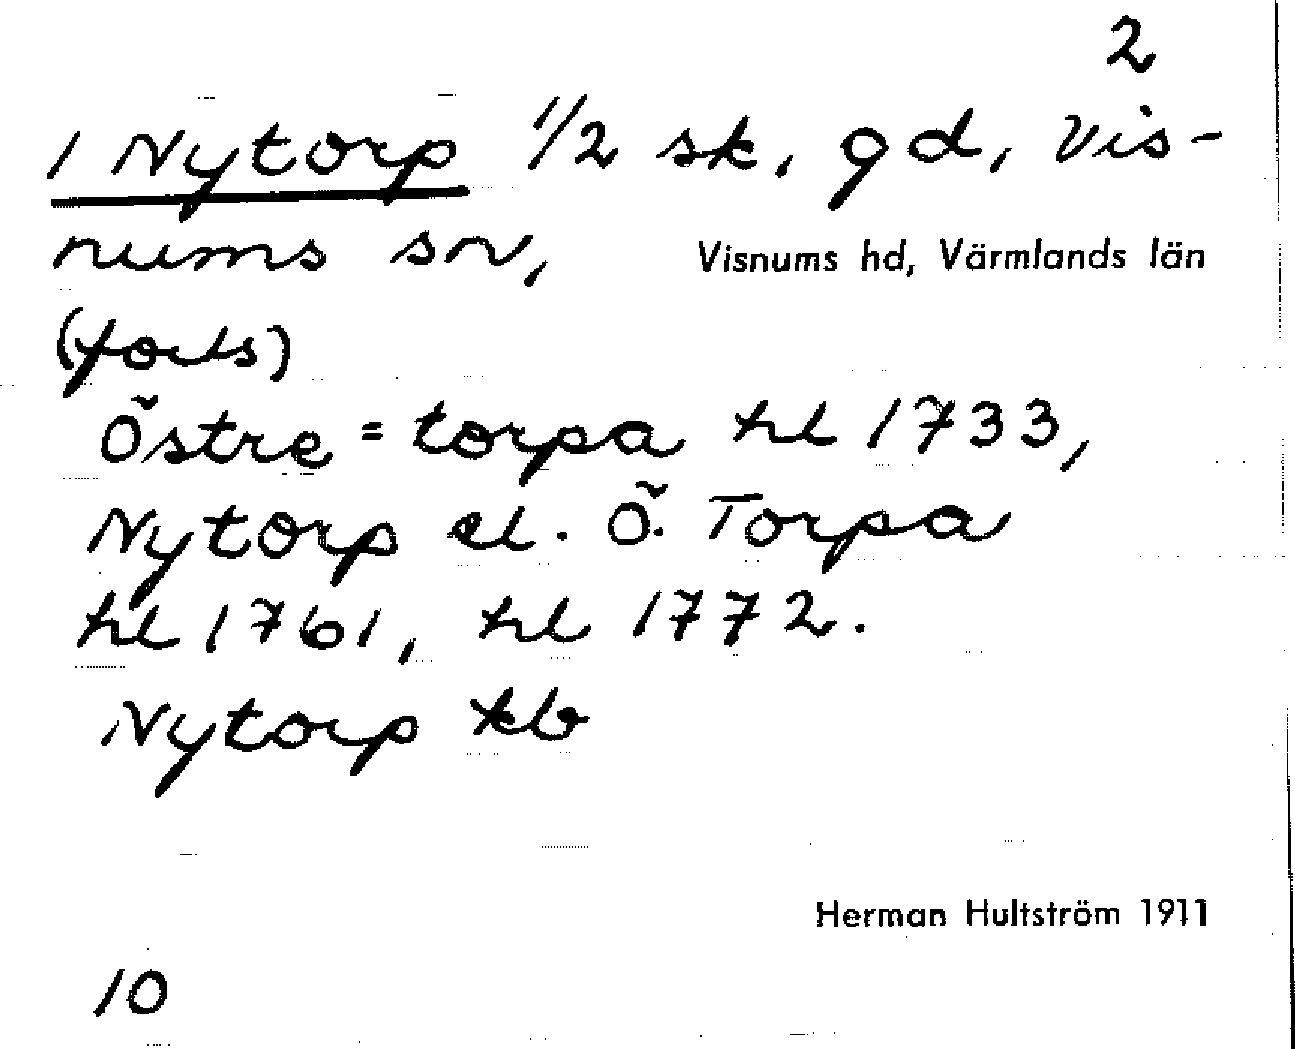 2
1 Nytorp 1/2 sk, gd, Vis-
nums sn, Visnums hd, Värmlands län
(forts)
Östre = torpa hl 1733,
Nytorp el. Ö. Torpa
hl 1761, hl 1772.
Nytorp kb
Herman Hultström 1911
10